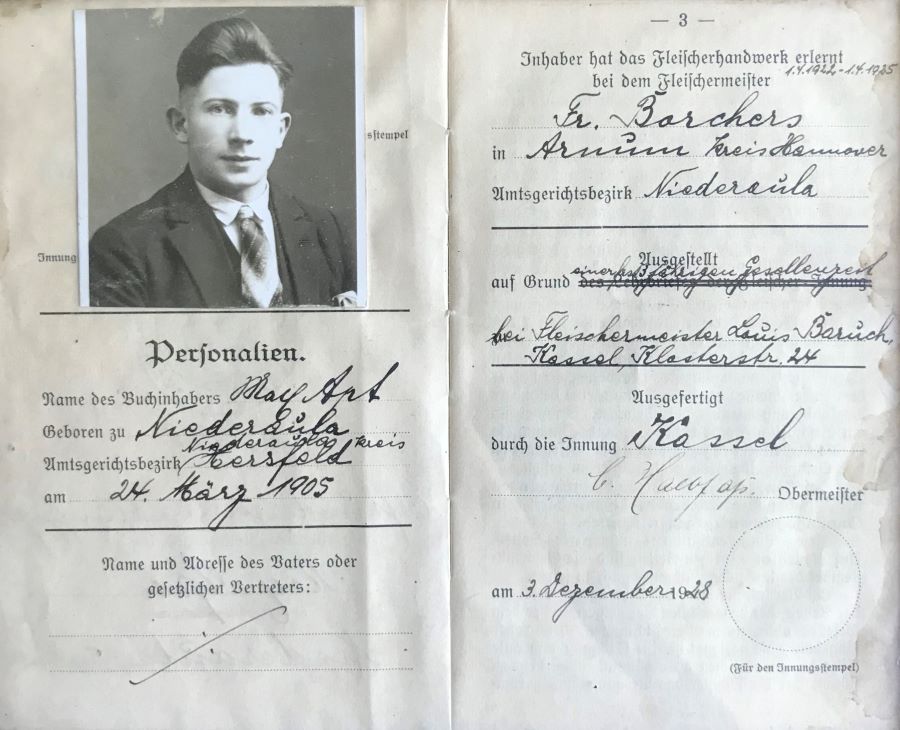 sstempel
Innung
Personalien.
Name des Buchinhabers Max Apt
Geboren zu Niederaula
Niederaula Kreis
Amtsgerichtsbezirk Hersfeld
am 24. März 1905
Name und Adresse des Vaters oder
gesetzlichen Vertreters:
— 3 —
Inhaber hat das Fleischerhandwerk erlernt
1.4.1922-1.4.1925
bei dem Fleischermeister
Fr. Borchers
in Arnum Kreis Hannover
Amtsgerichtsbezirk Niederaula
Ausgestellt
einer 3 jährigen Gesellenzeit
auf Grund des Lehrbriefes der Fleischer Innung
bei Fleischermeister Louis Baruch,
Kassel, Klosterstr. 24
Ausgefertigt
durch die Innung Kassel
Obermeister
am 3. Dezember 1928
(Für den Innungsstempel)